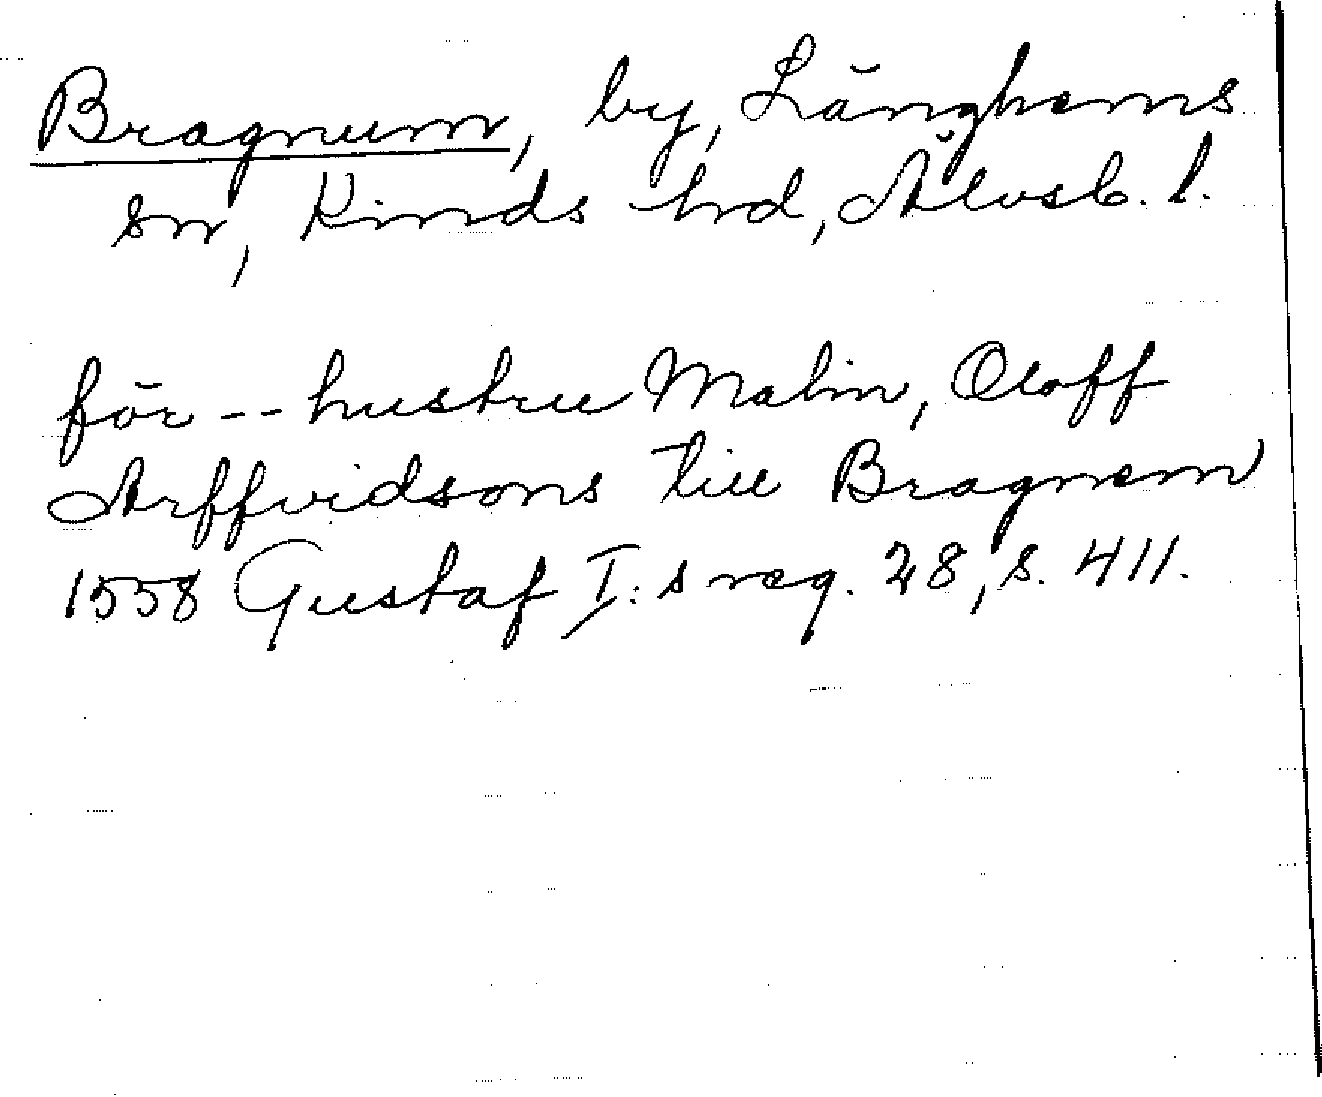 Bragnum, by, Länghems
sn, Kinds hrd, Älvsb. l.
för -- hustru Malin, Oloff
Arffvidsons till Bragnem
1558 Gustaf I:s reg. 28, s. 411.